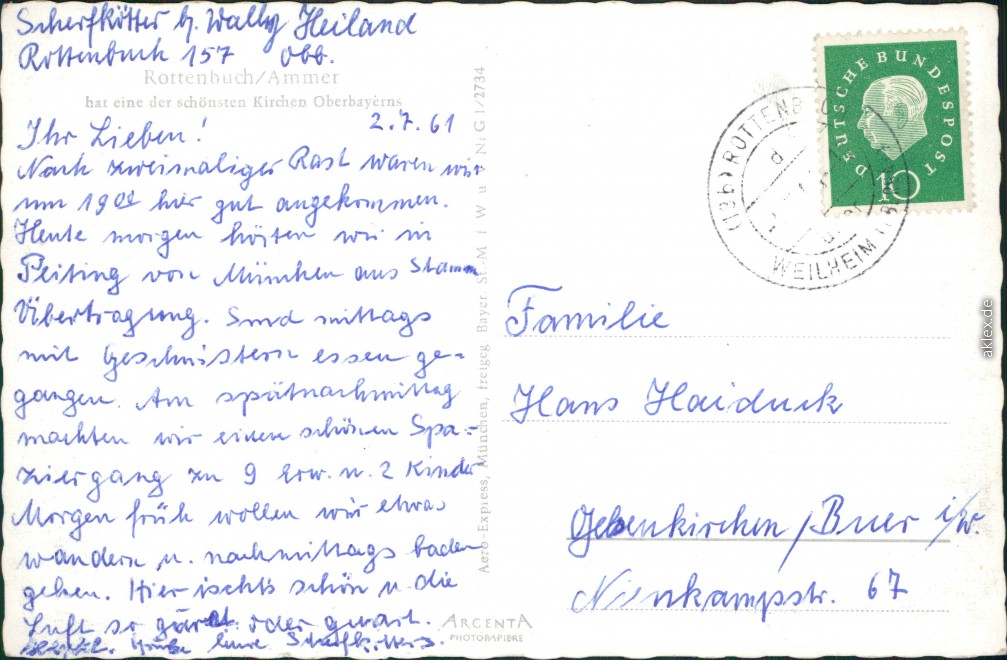 Scherfkötter b. Wally Heiland
Rottenbuch 157 Obb.
Rottenbuch/Ammer
hat eine der schönsten Kirchen Oberbayerns
2.7.61
Ihr Lieben!
Nach zweimaliger Rast waren wir
um 19 00 hier gut angekommen.
Heute morgen hörten wir in
Peiting von München aus Stamm
Übertragung. Sind mittags
mit Geschwistern essen ge-
gangen. Am spätnachmittag
machten wir einen schönen Spa-
ziergang zu 9 Erw. u. 2 Kinder
Morgen früh wollen wir etwas
wandern u. nachmittags baden
gehen. Hier ischts schön u. die
Luft so
oder
Grüße Eure Scherfkötters.
Aero-Express, München, freigeg. Bayer. St. M f W u V Nr. G 1/2734
ARGENTA
PHOTOPAPIERE
DEUTSCHE BUNDESPOST
10
(13b) ROTTENB
WEILHEIM
Familie
Hans Haiduck
Gelsenkirchen/Buer i/W.
Nienkampstr. 67
aklex.de